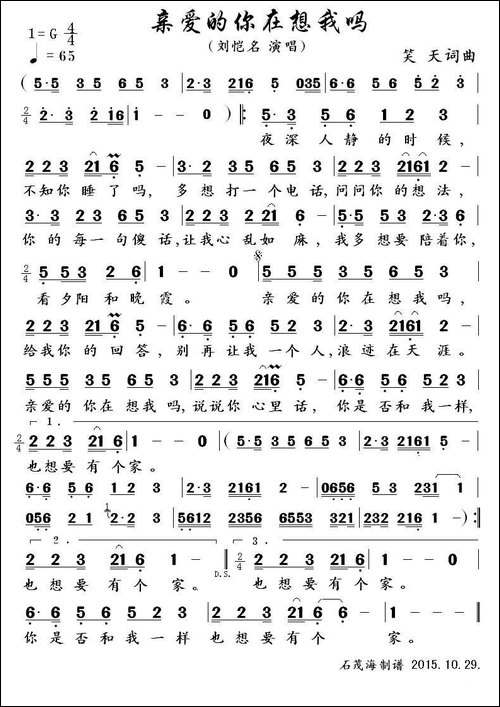 亲爱的你在想我吗
1=G 4/4
(刘恺名 演唱)
♩=65
笑 天词曲
(5·5 35 65 3 | 2·3 216 5 035 | 6·5 12 3 |
2/4 2·3 216 | 1 — ) ‖: 5·5 35 65 3 | 6·5 1 2 3 |
夜深 人静的时候,
2 2 3 21 6 5 — | 3·3 23 65 3 | 2 2 3 2161 2 — |
不知你 睡了吗, 多想打一个电话,问问你的想法,
3·3 23 65 3 | 2 2 3 221 6 — | 5·5 53 2·3 6 |
你的每一句傻话,让我心乱如麻,我多想要陪着你,
2/4 5 53 2 3 56 | 1 — — 0 | 5 5 3 5 65 3 |
看夕阳和晚霞。 亲爱的你在想我吗,
2 2 3 21 6 5 — | 3·3 23 65 3 | 2·3 2161 2 — |
给我你的回答, 别再让我一个人,浪迹在天涯。
5 5 3 5 65 3 | 2 2 3 2216 5 — | 6·5 56 11 23 |
亲爱的你在想我吗,说说你心里话, 你是否和我一样,
1.
2/4 2 2 3 21 6 | 1 — — 0 | (5·5 35 65 3 | 2·3 2161 5 — |
也想要有个家。
6·6 56 12 3 | 2·3 2161 2 — | 0656 535 231 1 |
056 21 2·2 3 | 5612 2356 6553 321 | 532 232 216 1 — ) :‖
2. 3.
2 2 3 21 6 1 — ‖ 2/4 2 2 3 21 6 | 1 — — 0 |
D.S.
也想要有个 家。 也想要有个家。
6·5 56 11 23 | 2 2 3 21 6 6 — | 1 — — — ‖
你是否和我一样 也想要有个 家。
石茂海制谱 2015.10.29.